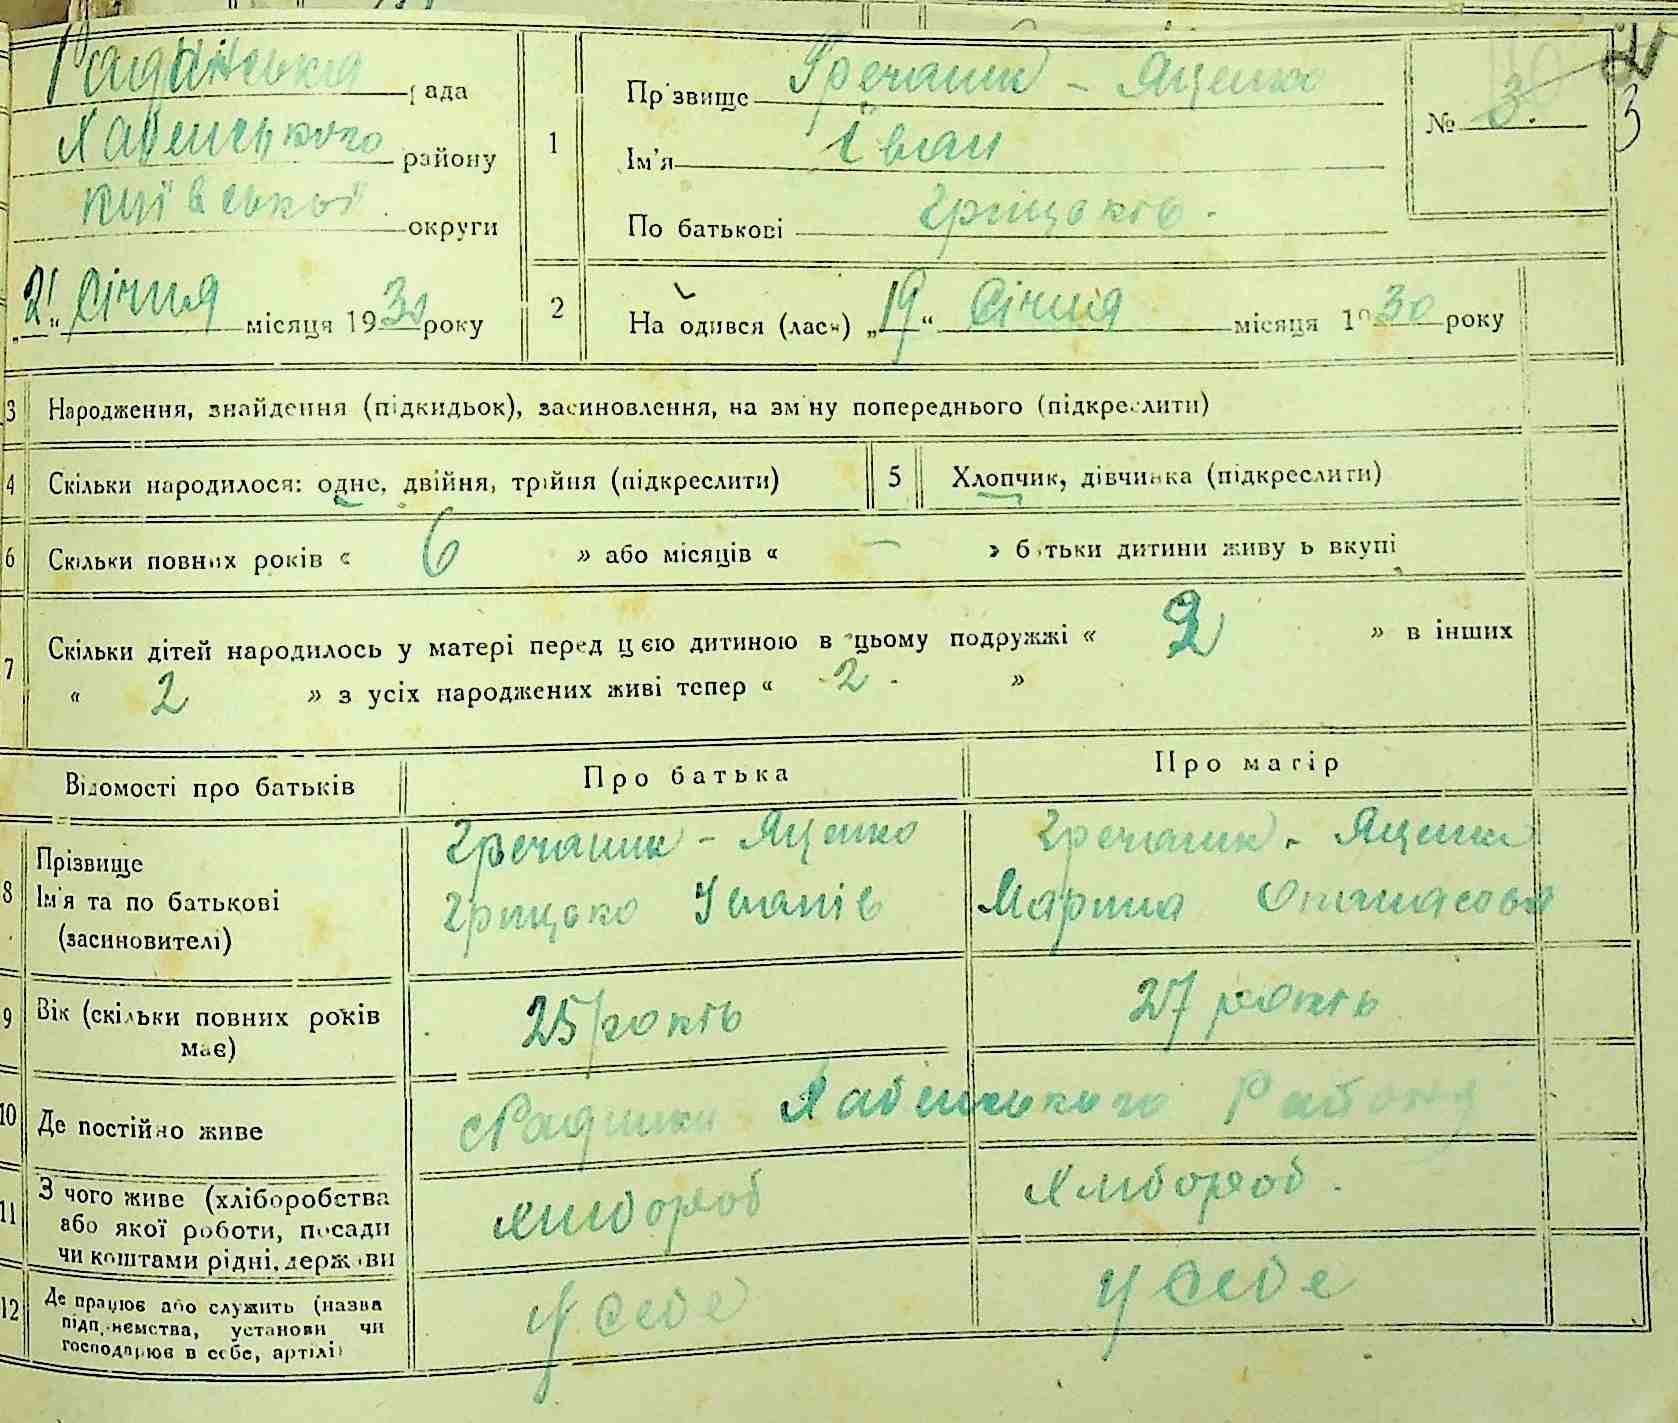 рада
Хабенського району
Київської округи
„21“ Січня місяця 1930 року
1
Прізвище Гречаник - Яценко
Ім'я Іван
По батькові Грицьків.
№ 3.
3
2
На одився (лася) „19“ Січня місяця 1930 року
3 Народження, знайдення (підкидьок), засиновлення, на зміну попереднього (підкреслити)
4 Скільки народилося: одне, двійня, трійня (підкреслити)
5 Хлопчик, дівчинка (підкреслити)
6 Скільки повних років « 6 » або місяців « — » батьки дитини живуть вкупі
7 Скільки дітей народилось у матері перед цією дитиною в цьому подружжі « 2 » в інших
« 2 » з усіх народжених живі тепер « 2 . »
Відомості про батьків Про батька Про матір
8 Прізвище Гречаник - Яценко Гречаник - Яценко
Ім'я та по батькові Грицько Іванів Марина Опанасова
(засиновителі)
9 Вік (скільки повних років має) 25 років 27 років
10 Де постійно живе Хабенського Району
11 З чого живе (хліборобства або якої роботи, посади чи коштами рідні, держави хлібороб Хлібороб.
12 Де працює або служить (назва підприємства, установи чи господарює в себе, артілі) у себе у себе